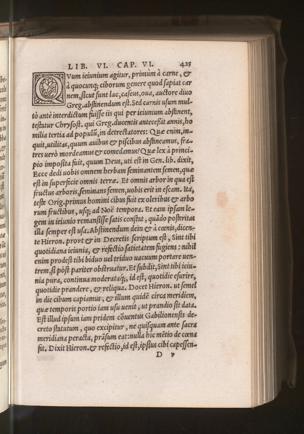 LIB. VI. CAP. VI. 425
QVum ieiunium agitur, primùm à carne, &
à quocunq; ciborum genere quod sapiat car
nem, sicut sunt lac, caseus, oua, auctore diuo
Greg. abstinendum est. Sed carnis usum mul-
tò ante interdictum fuisse iis qui per ieiunium abstinent,
testatur Chrysost. qui Greg. ducentis antecessit annis, ho
milia tertia ad populũ, in detrectatores: Quæ enim, in-
quit, utilitas, quum auibus & piscibus abstineamus, fra-
tres uerò mordeamus & comedamus? Quæ lex à princi-
pio imposita fuit, quum Deus, uti est in Gen. lib. dixit,
Ecce dedi uobis omnem herbam seminantem semen, quæ
est in superficie omnis terræ. Et omnis arbor in qua est
fructus arboris, seminans semen, uobis erit in escam. Ita,
teste Orig. primus homini cibus fuit ex oleribus & arbo
rum fructibus, usq; ad Noë tempora. Et eam ipsam le-
gem in ieiunio remansisse satis constat, quãdo posteritas
illa semper est usa. Abstinendum dein & à cœnis, dicen-
te Hieron. prout & in Decretis scriptum est, Sint tibi
quotidiana ieiunia, & refectio satietatem fugiens: nihil
enim prodest tibi biduo uel triduo uacuum portare uen-
trem, si pòst pariter obstruatur. Et subdit, Sint tibi ieiu-
nia pura, continua moderataq́;, id est, quotidie esurire,
quotidie prandere, & reliqua. Docet Hieron. ut semel
in die cibum capiamus, & illum quidẽ circa meridiem,
quæ temporis portio iam usu uenit, ut prandio sit data.
Est illud ipsum iam pridem cõuentus Gabilionensis de-
creto statutum, quo excipitur, ne quisquam ante sacra
meridiana peracta, præsum eat: nulla hic mẽtio de cœna
fit. Dixit Hieron. & refectio, id est, ipsius cibi capessen-
D